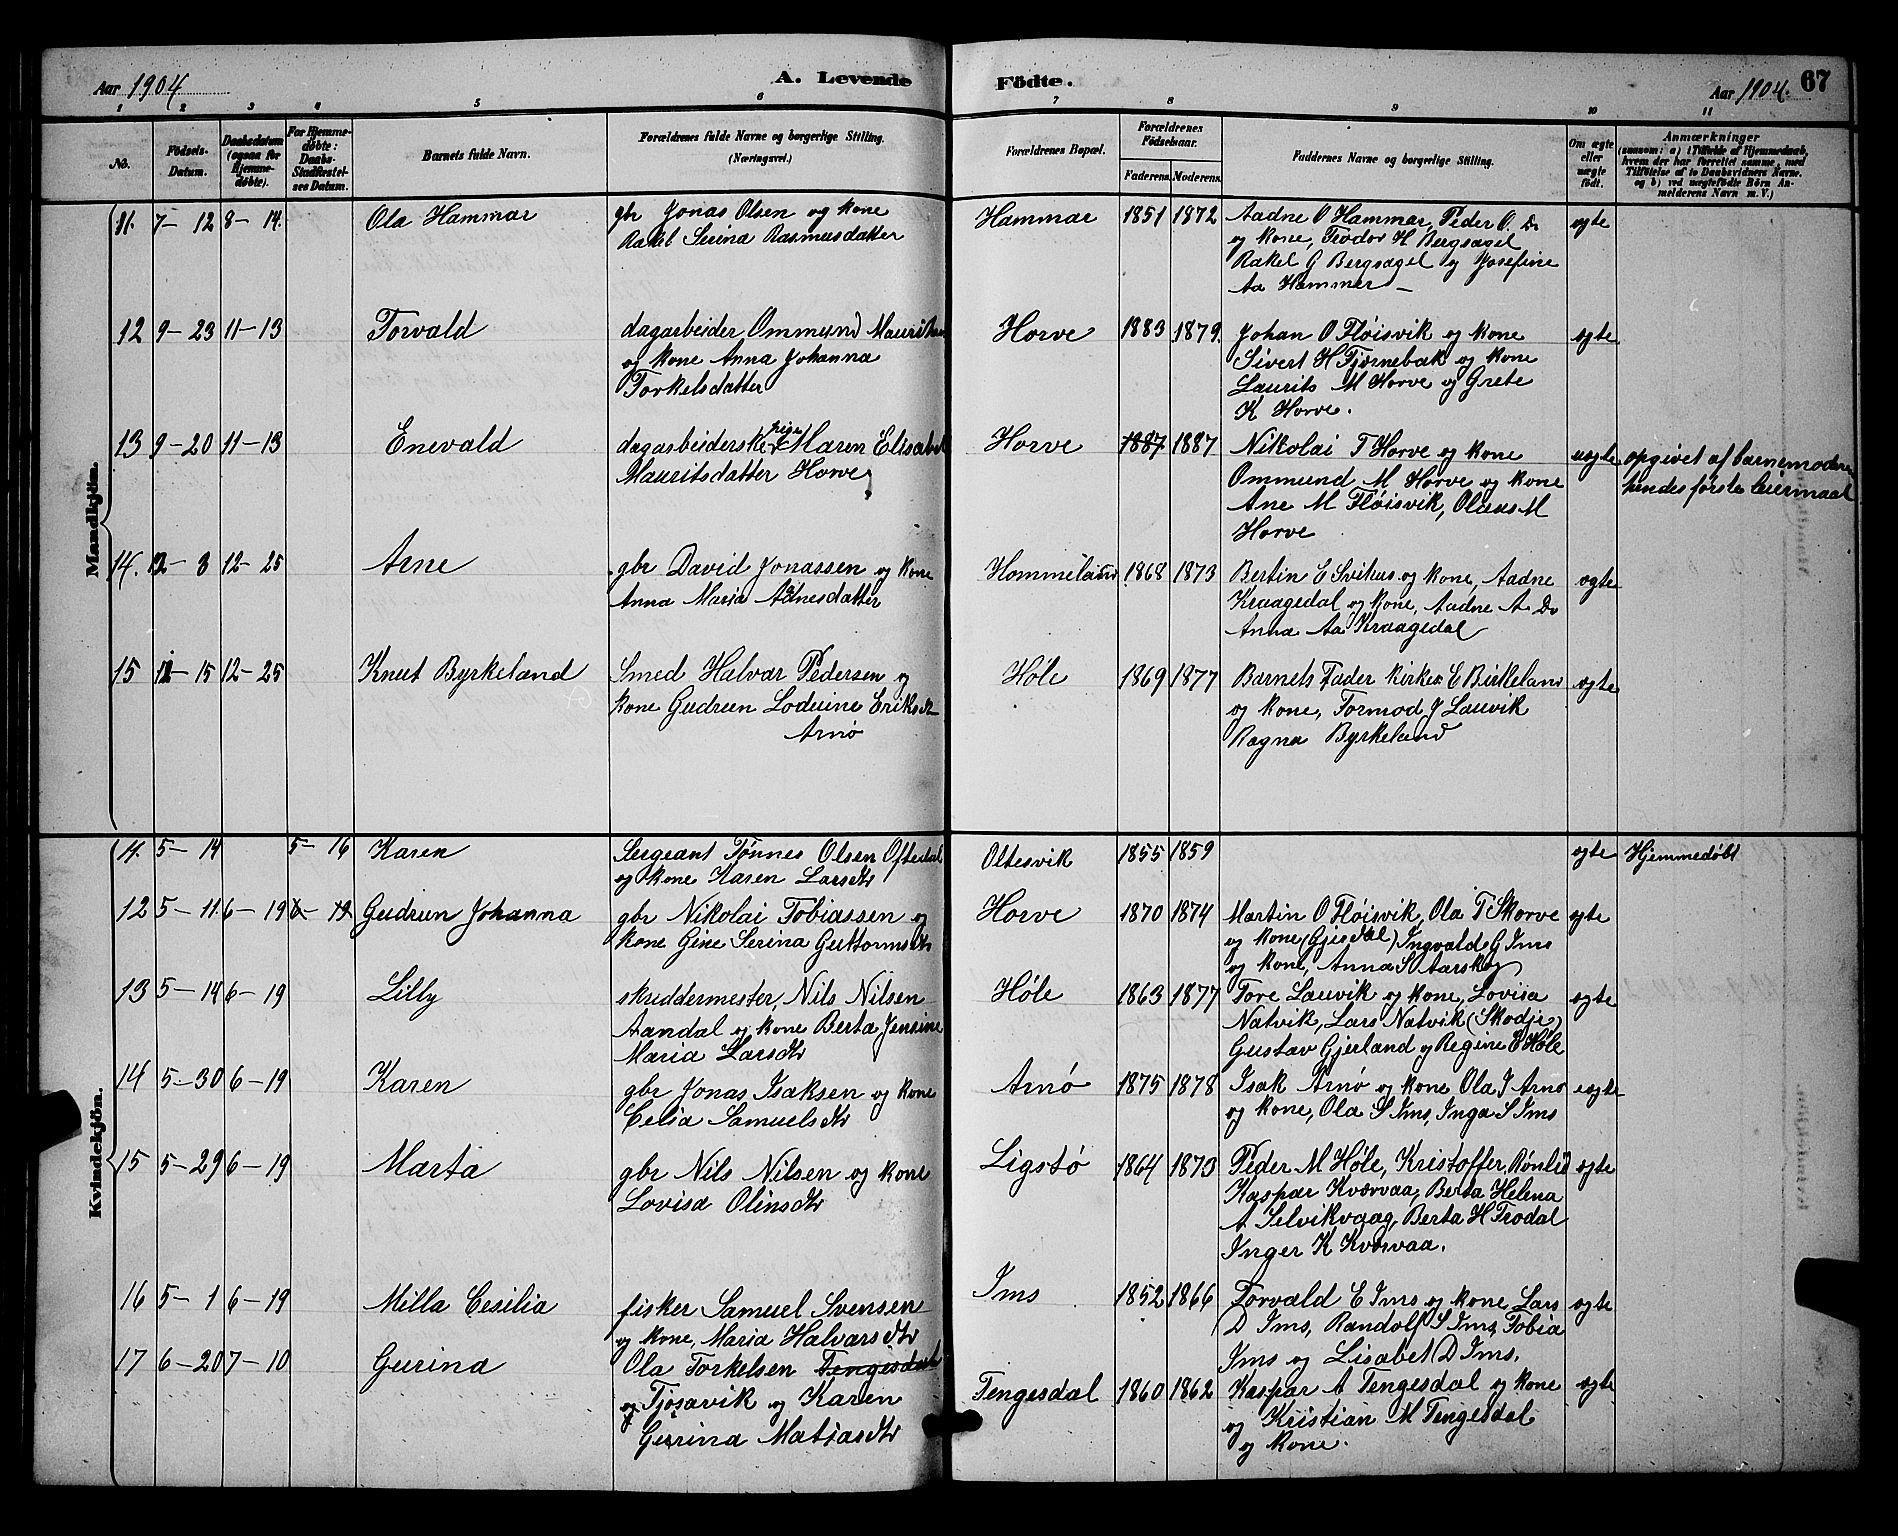 Aar 1904 A. Levende Födte. Aar 1904. 67
1 2 3 4 5 6 7 8 9 10 11
No. Födsels-Datum. Daabsdatum (ogsaa for Hjemme-døbte). For Hjemme-døbte: Daabs-Stadfæstel-ses Datum. Barnets fulde Navn. Forældrenes fulde Navne og borgerlige Stilling. (Næringsvei.) Forældrenes Bopæl. Forældrenes Födselsaar. Faderens. Moderens. Faddernes Navne og borgerlige Stilling. Om ægte eller uægte födt. Anmærkninger (saasom: a) i Tilfælde af Hjemmedaab, hvem der har forrettet samme, med Tilföielse af to Daabsvidners Navne. og b) ved uægtefödte Börn An-melderens Navn m.V.)
Mandkjön.
11. 7-12 8-14. Ola Hammar gbr Jonas Olsen og kone Hammar 1851 1872 Aadne O Hammar, Peder O. Do ogte
Rakel Serina Rasmusdatter og kone, Teodor H Bergsagel
Rakel G Bergsagel og Josefine
Aa Hammer
12 9-23 11-13 Torvald dagarbeider Ommund Mauritsen Horve 1883 1879. Johan O Fløisvik og kone ogte
og kone Anna Johanna Sivert H Tjørnebak og kone
Torkelsdatter Laurits M Horve og Grete
K Horve.
13 9-20 11-13 Enevald dagarbeiderske pige Maren Elisabet Horve 1887 1887 Nikolai T Horve og kone uogte opgivet af barnemoderen
Mauritsdatter Horve Ommund M Horve og kone hendes første leiermaal
Ane M Fløisvik, Olaus M
Horve
14. 12-3 12-25 Arne gbr David Jonassen og kone Hommeland 1868 1873 Bertin E Svihus og kone, Aadne ogte
Anna Maria Adnesdatter Kraagedal og kone, Aadne A Do
Anna Aa Kraagedal
15 11-15 12-25 Knut Byrkeland Smed Halvar Pedersen og Høle 1869 1877 Barnets Fader kirkes E Birkeland ogte
kone Gudrun Lodvine Eriksdtr og kone, Tormod J Lauvik
Arnø Ragna Byrkeland
Kvindekjön.
11. 5-14 5-16 Karen Sergeant Tønnes Olsen Oftedal Oltesvik 1855 1859 ogte Hjemmedøbt
og kone Karen Larsdtr
12 5-11 6-19 6-19 Gudrun Johanna gbr Nikolai Tobiassen og Horve 1870 1874 Martin O Fløisvik, Ola T Skorve ogte
kone Gine Serina Guttormsdtr og kone (Gjesdal) Ingvald G Ims
og kone, Anna S Aarskog
13 5-14 6-19 Lilly skreddermester, Nils Nilsen Høle 1863 1877 Tore Lauvik og kone, Lovisa ogte
Aandal og kone Berta Jensine Natvik, Lars Natvik (Skodje)
Maria Larsdtr Gustav Gjerland og Regine E Høle
14 5-30 6-19 Karen gbr Jonas Isaksen og kone Arnø 1875 1878 Isak Arnø og kone Ola I Arnø eogte
Celia Samuelsdtr og kone, Ola S Ims, Inga S Ims
15 5-29 6-19 Marta gbr Nils Nilsen og kone Ligstø 1864 1873 Peder M Høle, Kristoffer Rønlid ogte
Lovisa Olinsdtr Kaspar Kvørvaa, Berta Helena
A Selvikvaag, Berta H Frodal
Inger K Kvørvaa.
16 5-1 6-19 Milla Cesilia fisker Samuel Svensen Ims 1852 1866 Torvald E Ims og kone Lars ogte
og kone, Maria Halvarsdtr D Ims, Randolf S Ims, Tobia
Ims og Lisabet D Ims.
17 6-20 7-10 Gurina Ola Torkelsen Tengesdal Tengesdal 1860 1862 Kaspar A Tengesdal og kone ogte
og Tjøsavik og Karen og Kristian M Tengesdal
Gurina Matiasdtr og kone.